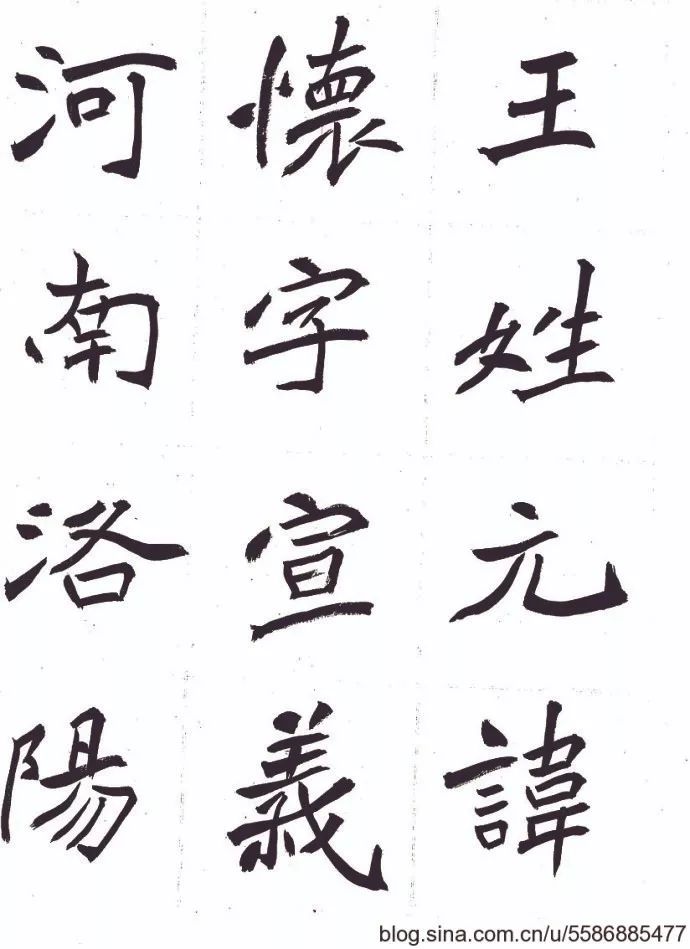 王姓元諱
懷字宣義
河南洛陽
blog.sina.com.cn/u/5586885477